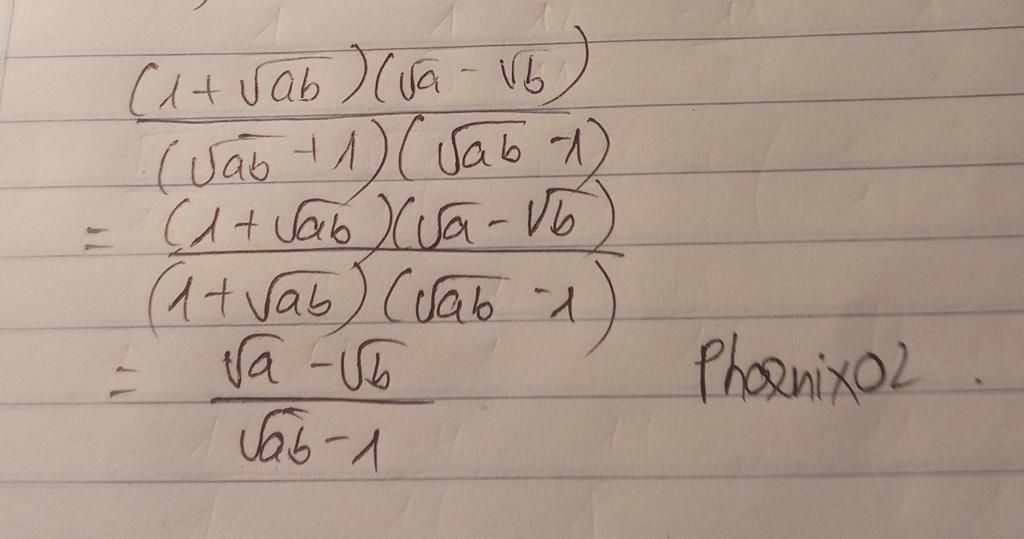 (1 + √ab)(√a - √b)
(√ab + 1)(√ab - 1)
= (1 + √ab)(√a - √b)
(1 + √ab)(√ab - 1)
= √a - √b
√ab - 1
Phoenix02.